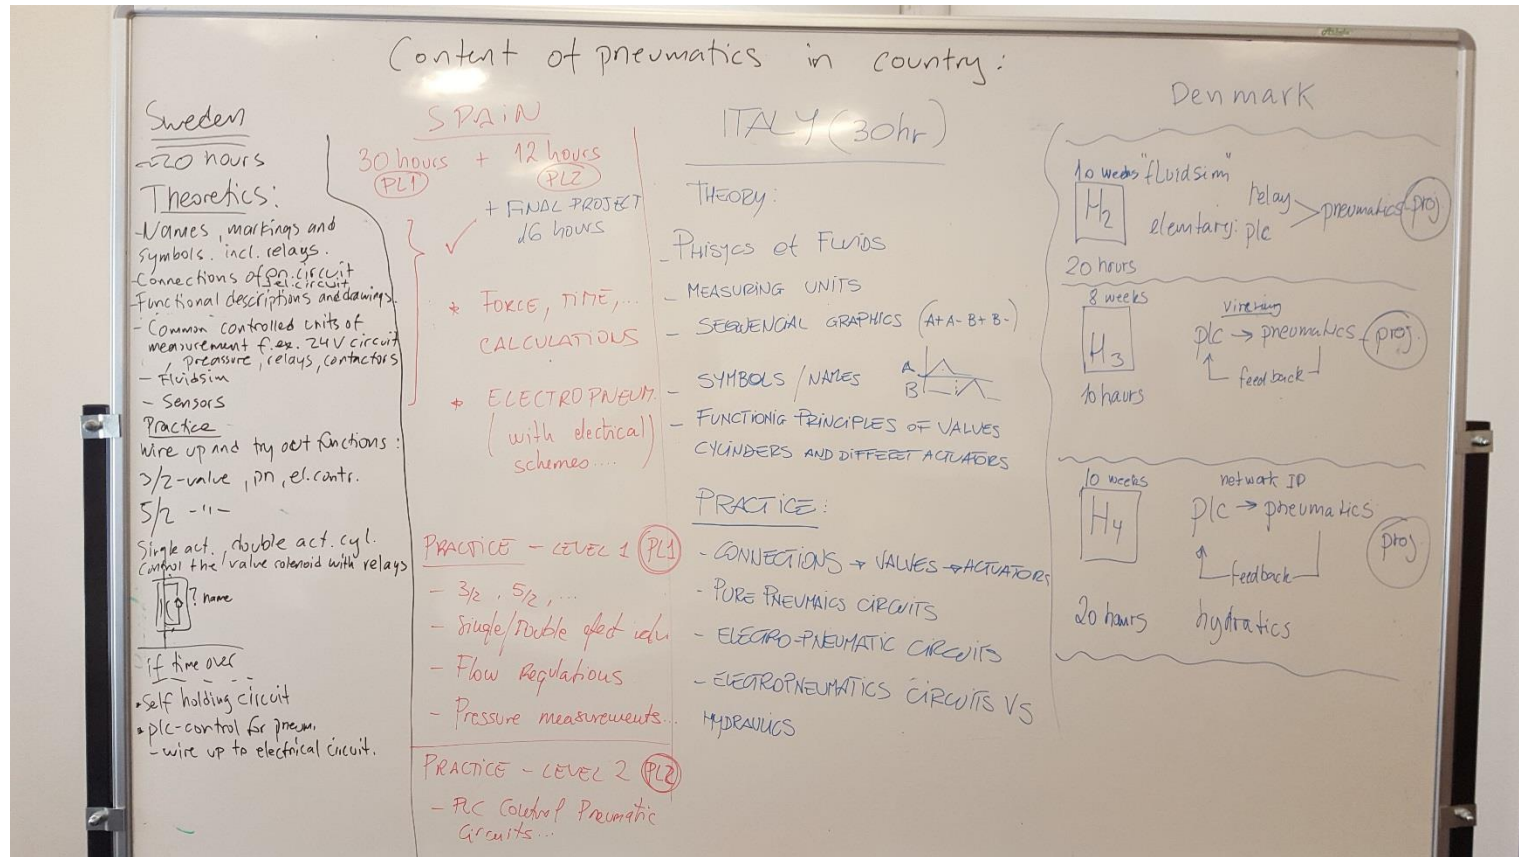 Content of pneumatics in country:
Sweden
~20 hours
Theoretics:
-Names, markings and
symbols. incl. relays.
-Connections of pn. circuit
el. circuit
-Functional descriptions and drawings.
- Common controlled units of
measurement f.ex. 24V circuit
, preassure, relays, contactors
- Fluidsim
- Sensors
Practice
Wire up and try out functions:
3/2-valve, pn, el. contr.
5/2 -"-
Single act., double act. cyl.
Control the valve solenoid with relays
? name
if time over
•Self holding circuit
•plc-control for pneum.
- wire up to electrical circuit.
SPAIN
30 hours + 12 hours
PL1 PL2
+ FINAL PROJECT
16 hours
* FORCE, TIME, ...
CALCULATIONS
* ELECTROPNEUM.
(with electrical)
schemes....
PRACTICE - LEVEL 1 PL1
- 3/2, 5/2, ...
- Single/Double efect
- Flow Regulations
- Pressure measurements...
PRACTICE - LEVEL 2 PL2
- PLC Control Pneumatic
Circuits...
ITALY (30hr)
THEORY:
- PHISYCS OF FLUIDS
- MEASURING UNITS
- SEQUENCIAL GRAPHICS (A+ A- B+ B-)
- SYMBOLS / NAMES
A
B
- FUNCTIONIG PRINCIPLES OF VALVES
CYLINDERS AND DIFFERET ACTUATORS
PRACTICE:
- CONNECTIONS → VALVES → ACTUATORS
- PURE PNEUMAICS CIRCUITS
- ELECTRO-PNEUMATIC CIRCUITS
- ELECTROPNEUMATICS CIRCUITS VS
HYDRAULICS
Denmark
10 weeks "fluidsim"
H2
relay
elemtary: plc
pneumatics - proj
20 hours
8 weeks
H3
plc → pneumatics - proj
feedback
10 hours
10 weeks network IO
H4
plc → pneumatics
proj
feedback
20 hours hydratics